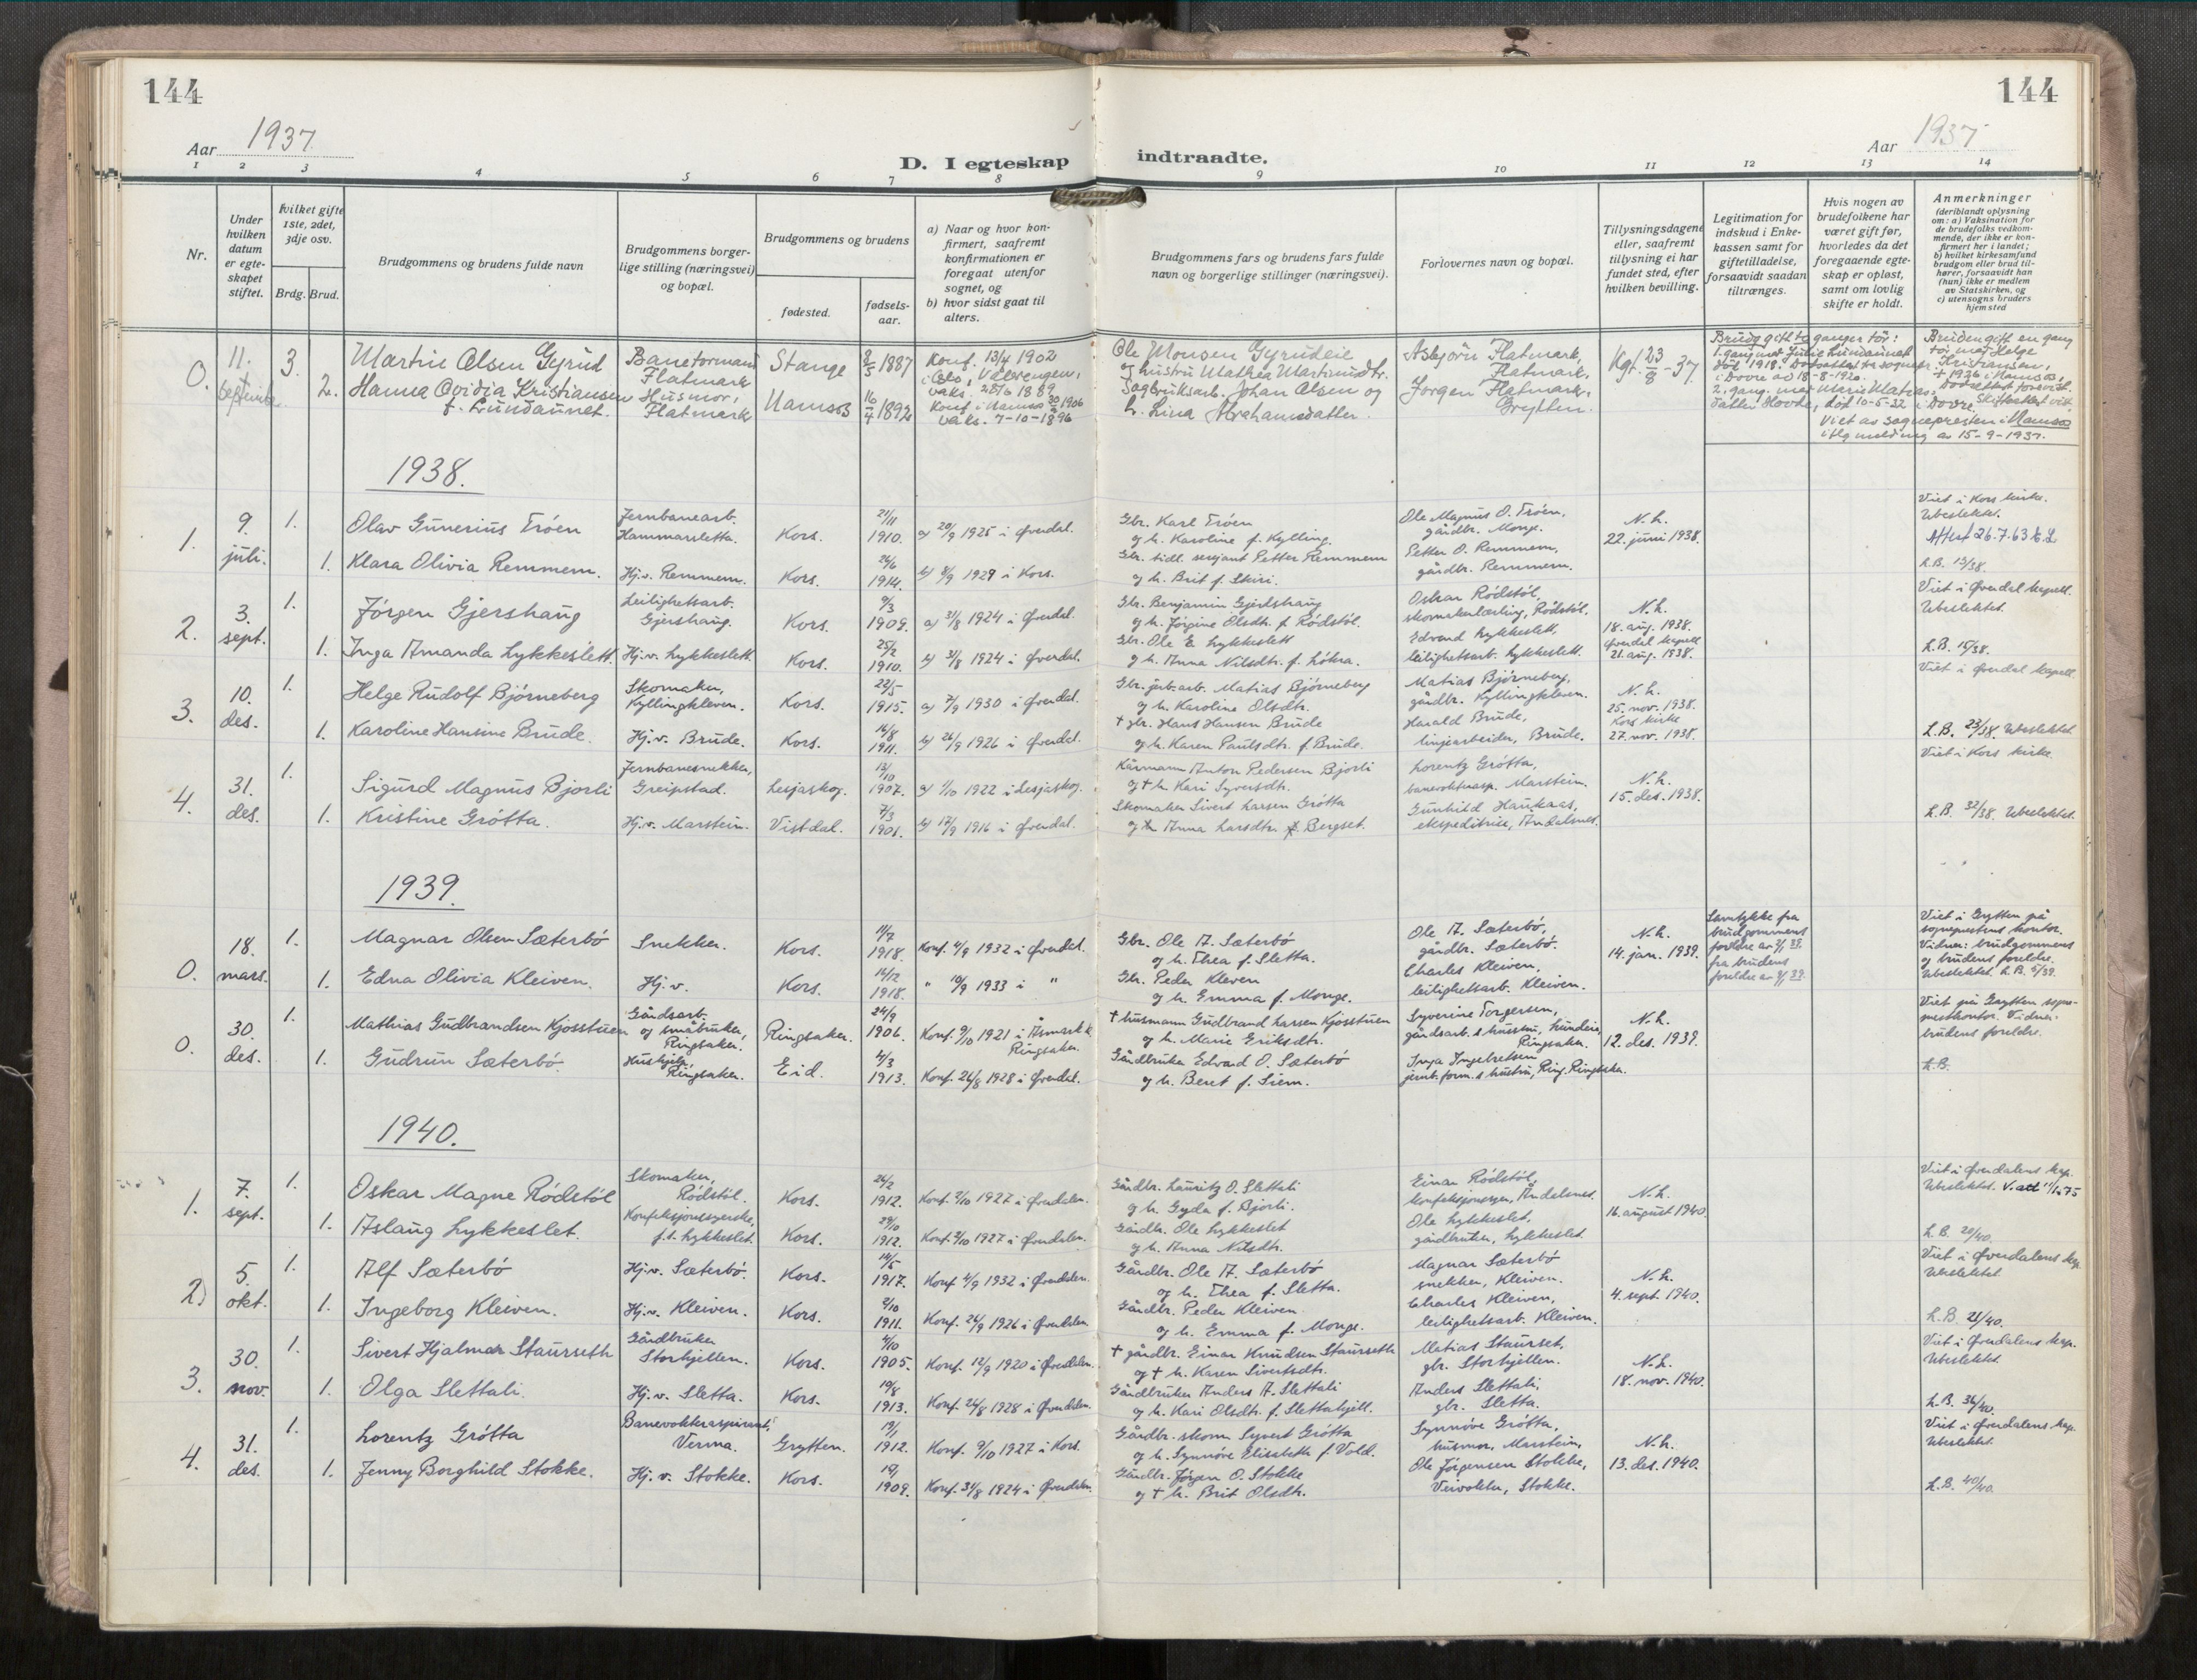 144
144
Aar 1937.
Aar 1937
D. I egteskap indtraadte.
1 2 3 4 5 6 7 8 9 10 11 12 13 14
Nr.
Under hvilken datum er egteskapet stiftet.
Hvilket gifte 1ste, 2det, 3dje osv.
Brdg. Brud.
Brudgommens og brudens fulde navn
Brudgommens borgerlige stilling (næringsvei) og bopæl.
Brudgommens og brudens
fødested.
fødselsaar.
a) Naar og hvor konfirmert, saafremt konfirmationen er foregaat utenfor sognet, og
b) hvor sidst gaat til alters.
Brudgommens fars og brudens fars fulde navn og borgerlige stillinger (næringsvei).
Forlovernes navn og bopæl.
Tillysningsdagene eller, saafremt tillysning ei har fundet sted, efter hvilken bevilling.
Legitimation for indskud i Enkekassen samt for giftetilladelse, forsaavidt saadan tiltrænges.
Hvis nogen av brudefolkene har været gift før, hvorledes da det foregaaende egteskap er opløst, samt om lovlig skifte er holdt.
Anmerkninger
(deriblandt oplysning om: a) Vaksination for de brudefolks vedkommende, der ikke er konfirmert her i landet; b) hvilket kirkesamfund brudgom eller brud tilhører, forsaavidt han (hun) ikke er medlem av Statskirken, og c) utensogns bruders hjemsted
0. 11. september 3. Martin Olsen Gyrud Baneformann Flatmark Stange 8/5 1887 Konf. 13/4 1902 i Oslo, Vålerengen, vaks. 28/6 1889
Ole Monsen Gyrudeie og hustru Mathea Martinusdtr. Asbjørn Flatmark, Flatmark, Kgf. 23/8-37
2. Hanna Ovidia Kristiansen f. Lundaunet. Husmor, Flatmark Namsos 16/4 1892 Konf i Namsos 30/9 1906 vaks. 7-10-1896
Sagbruksarb. Johan Olsen og h. Lina Abrahamsdatter. Jørgen Flatmark, Grytten.
Brudg gift to ganger før: 1. gang med Julie Lundaunet død 1918.
i Dovre av 18-8-1920.
2. gang med Marie Matiasdatter Hovde, død 10-5-32 i Dovre. Skifteattest vist.
Bruden gift en gang før med Helge Kristiansen, † 1936 i Namsos,
Viet av sognepresten i Namsos iflg melding av 15-9-1937.
1938.
1. 9. juli. 1. Olav Gunerius Trøen Jernbanearb. Hammarsletta. Kors. 21/11 1910. a) 20/9 1925 i Øverdal.
Gbr. Karl Trøen og h. Karoline f. Kylling. Ole Magnus O. Trøen, gårdbr. Monge. N.h. 22. juni 1938.
Viet i Kors kirke. Ubeslektet. Attest 26.7.63
1. Klara Olivia Remmem. Hj.v. Remmem. Kors. 26/6 1914. b) 8/9 1929 i Kors.
Gbr. tidl. sersjant Petter Remmem og h. Brit f. Skiri. Petter O. Remmem, gårdbr. Remmem. L.B. 13/38.
2. 3. sept. 1. Jørgen Gjershaug Leilighetsarb. Gjershaug. Kors. 9/3 1909. a) 31/8 1924 i Øverdal.
Gbr. Benjamin Gjershaug og h. Jørgine Olsdtr. f. Rødstøl. Oskar Rødstøl, skomakerlærling, Rødstøl. N.h. 18. aug. 1938.
Viet i Øverdal kapell. Ubeslektet.
1. Inga Amanda Lykkeslett. Hj.v. Lykkeslett. Kors. 25/2 1910. b) 31/8 1924 i Øverdal.
Gbr. Ole E Lykkeslett og h. Anna Nilsdtr. f. Løkra. Edvard Lykkeslett, leilighetsarb. Lykkeslett. Øverdal kapell 21. aug. 1938. L.B. 15/38.
3. 10. des. 1. Helge Rudolf Bjørneberg Skomaker, Kyllingkleven. Kors. 22/5 1915. a) 7/9 1930 i Øverdal.
Gbr. jrb.arb. Matias Bjørneberg og h. Karoline Olsdtr. Matias Bjørneberg, gårdbr. Kyllingkleven. N.h. 25. nov. 1938.
Viet i Øverdal kapell.
1. Karoline Hansine Brude. Hj.v. Brude. Kors. 14/8 1911. b) 26/9 1926 i Øverdal.
† gbr. Hans Hansen Brude og h. Karen Paulsdtr. f. Brude. Harald Brude, linjearbeider, Brude. Kors kirke 27. nov. 1938. L.B. 23/38. Ubeslektet
4. 31. des. 1. Sigurd Magnus Bjorli Jernbanesnekker, Greipstad. Lesjaskog. 13/10 1907. a) 1/10 1922 i Lesjaskog.
Kårmann Anton Pedersen Bjorli og † h. Kari Syversdtr. Lorentz Grøtta, banevoktrasp. Marstein. N.h. 15. des. 1938.
Viet i Kors kirke.
1. Kristine Grøtta. Hj.v. Marstein. Vistdal. 7/3 1901. b) 17/9 1916 i Øverdal.
Skomaker Sivert Larsen Grøtta og h Anna Larsdtr f. Bergset. Gunhild Haukaas, ekspeditrise, Åndalsnes. L.B. 32/38. Ubeslektet.
1939.
0. 18. mars. 1. Magnar Olsen Sæterbø Snekker. Kors. 11/7 1918. Konf. 4/9 1932 i Øverdal.
Gbr. Ole A. Sæterbø og h. Thea f. Sletta. Ole A. Sæterbø, gårdbr. Sæterbø. N.h. 14. jan. 1939.
Samtykke fra brudgommens foreldre fra brudens foreldre
Viet i Grytten på sogneprestens kontor. Vidner: brudgommens og brudens foreldre. Ubeslektet. L.B. 5/39.
1. Edna Olivia Kleiven. Hj.v. Kors. 14/12 1918. " 10/9 1933 i "
Gbr. Peder Kleven og h. Emma f. Monge. Charles Kleiven, leilighetsarb. Kleiven.
0. 30. des. 1. Mathias Gudbrandsen Kjosstuen Gårdsarb. og småbruker, Ringsaker. Ringsaker. 24/9 1906. Konf. 9/10 1921 i Åsmark k. Ringsaker.
† husmann Gudbrand Larsen Kjosstuen og h. Marie Eriksdtr. Syverine Torgersen, gårdsarb.s hustru, Ringsaker. N.h. 12. des. 1939.
Viet på Grytten sogneprestkontor. Vidner: brudens foreldre.
1. Gudrun Sæterbø. Hushjelp, Ringsaker. Eid. 4/3 1913. Konf. 26/8 1928 i Øverdal.
Gårdbruker Edvard O. Sæterbø og h. Beret f. Siem. Inga Ingebretsen jernb.form.s hustru, Ring. Ringsaker. L.B.
1940.
1. 7. sept. 1. Oskar Magne Rødstøl Skomaker, Rødstøl. Kors. 26/2 1912. Konf. 2/10 1927 i Øverdalen.
Gårdbr. Lauritz O. Slettali og h. Gyda f. Bjorli. Einar Rødstøl, Åndalsnes. N.h. 16. august 1940.
Viet i Øverdalens kap. Ubeslektet. V. att 11/1-75
1. Aslaug Lykkeslet. Konfeksjonssyerske, f.t. Lykkeslet. Kors. 29/10 1912. Konf. 2/10 1927 i Øverdalen.
Gårdbr. Ole Lykkeslet og h. Anna Nilsdtr. Ole Lykkeslet, gårdbruker, Lykkeslet. L.B. 20/40.
2) 5. okt. 1. Alf Sæterbø Hj.v. Sæterbø. Kors. 14/5 1917. Konf 4/9 1932 i Øverdalen.
Gårdbr. Ole A. Sæterbø og h. Thea f. Sletta. Magnar Sæterbø snekker, Kleiven. N.h. 4. sept. 1940.
Viet i Øverdalens kap. Ubeslektet
1. Ingeborg Kleiven. Hj.v. Kleiven. Kors. 2/10 1911. Konf. 26/9 1926 i Øverdalen
Gårdbr. Peder Kleiven. og h. Emma f. Monge. Charles Kleiven, leilighetsarb. Kleiven. L.B. 21/40.
3. 30. nov. 1. Sivert Hjalmar Staurseth Gårdbruker Storhjellen. Kors. 4/10 1905. Konf. 12/9 1920 i Øverdalen.
† gårdbr. Einar Knudsen Staurseth og † h. Karen Sivertsdtr. Matias Staurset, gbr. Storhjellen. N.h. 18. nov. 1940.
Viet i Øverdalens kap. Ubeslektet
1. Olga Slettali. Hj.v. Sletta. Kors. 19/8 1913. Konf. 26/8 1928 i Øverdalen.
Gårdbruker Anders A. Slettali og h. Kari Olsdtr. f. Slettahjell. Anders Slettali, gbr. Sletta. L.B. 36/40.
4. 31. des. 1. Lorentz Grøtta Banevokteraspirant, Verma. Grytten. 19/1 1912. Konf. 9/10 1927 i Kors.
Gårdbr. skom Syvert Grøtta og h. Synnøve Elisabeth f. Vold. Synnøve Grøtta, husmor, Marstein, N.h. 13. des. 1940.
Viet i Øverdalens kap. Ubeslektet.
1. Jenny Borghild Stokke. Hj.v. Stokke. Kors. 1909. Konf. 31/8 1924 i Øverdalen.
Gårdbr. Jørgen O. Stokke og † h. Brit Olsdtr. Ole Jørgensen Stokke, Veivokter, Stokke. L.B. 40/40.